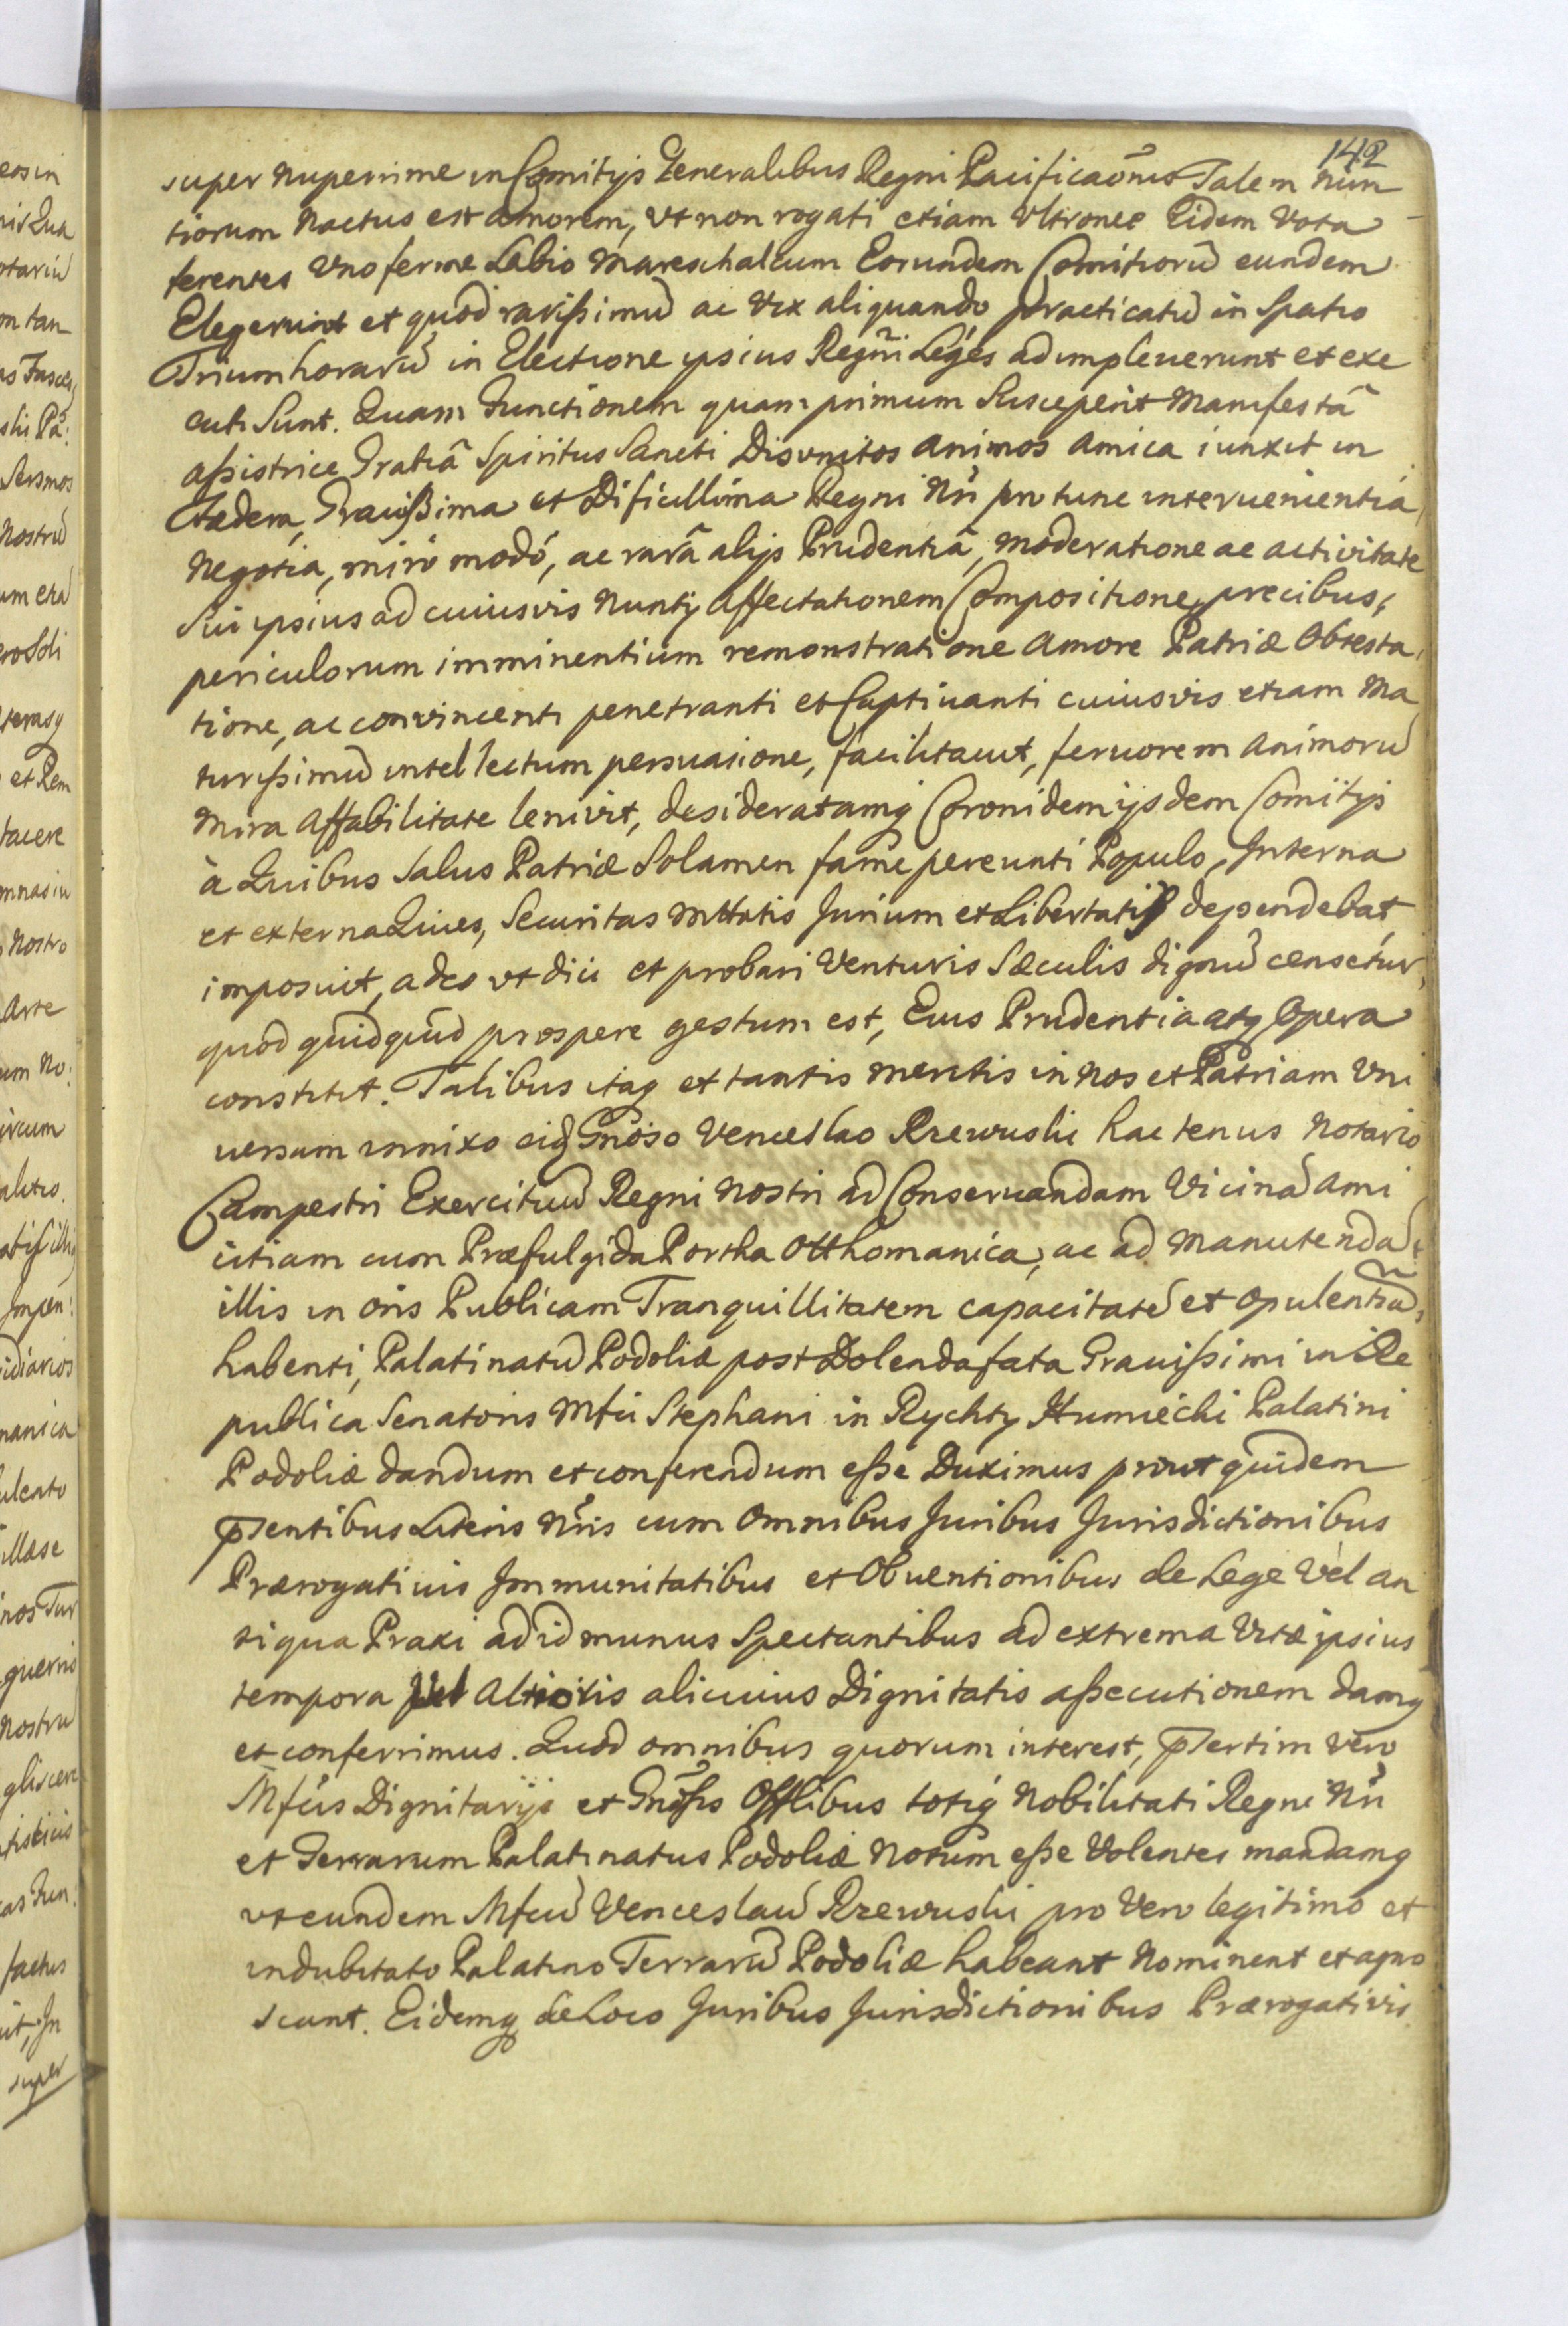 142
super nuperrime in Comitijs Generalibus Regni Pacificaõnis Talem nun
tiorum nactus est amorem, vt non rogati etiam Vltronee Eidem Vota
ferentes Vno ferme Labio Mareschalcum Eorundem Comitiorũ eundem
Elegerunt et quod rarißimũ ac Vix aliquando practicatũ in Spatio
Trium horarũ in Electione ipsius Regni Leges adimpleuerunt et exe
cuti Sunt. Quam Functionem quam primum Susceperit Manifestâ
aßistrice Gratiâ Spiritus Sancti Disunitos animos amica iunxit in
Cædera, Grauißima et Dificillima Regni Nri pro tunc interuenientia
Negotia, miro modó, ac rarâ alijs Prudentiâ, moderatione ac actiuitate
Sui ipsius ad cuiusvis Nuntij affectationem Compositione, precibus,
periculorum imminentium remonstratione amore Patriæ Obtesta
tione, ac convincenti penetranti et Captiuanti cuiusvis etiam Ma
turißimũ intellectum persuasione, facilitauit, feruorem animorũ
mira affabilitate leniuit, desideratamq Coronidem ijsdem Comitijs
à Quibus Salus Patriæ Solamen fame pereunti Populo, Interna
et externa Quies, Securitas Mttatis Jurium et Libertatis dependebat
imposuit, adeo vt dici et probari Venturis Sæculis dignũ censetur,
quod quidquid prospere gestum est, Eius Prudentia atq Opera
constitit. Talibus itaq et tantis meritis in nos et Patriam Vni
uersum innixo eidẽ Gnoso Venceslao Rzewuski hactenus Notario
Campestri Exercituũ Regni Nostri ad Conseruandam Vicinã ami
citiam cum Præfulgida Portha Otthomanica, ac ad manutendã
illis in oris Publicam Tranquillitatem capacitatẽ et opulentiã
habenti, Palatinatũ Podoliæ post Dolenda fata Grauißimi in Re
publica Senatoris Mfci Stephani in Rychty Humiecki Palatini
Podoliæ dandum et conferendum eße Duximus prout quidem
Pñtibus Literis Nris cum Omnibus Juribus Jurisdictionibus
Prærogatiuis Immunitatibus et Obuentionibus de Lege Vel an
tiqua Praxi ad id munus Spectantibus ad extrema Vitæ ipsius
tempora Vel Altioris alicuius Dignitatis aßecutionem damq
et conferrimus. Quod omnibus quorum interest, Psertim Vero
Mfcis Dignitarijs et Gnosis Offlibus totiq Nobilitati Regni Nri
et Terrarum Palatinatus Podoliæ Notum eße Volentes mandamq
vt eundem Mfcũ Venceslaũ Rzewuski pro Vero legitimo et
indubitato Palatino Terrarũ Podoliæ habeant Nominent et agno
scant. Eidemq de Loco Juribus Jurisdictionibus Prærogativis